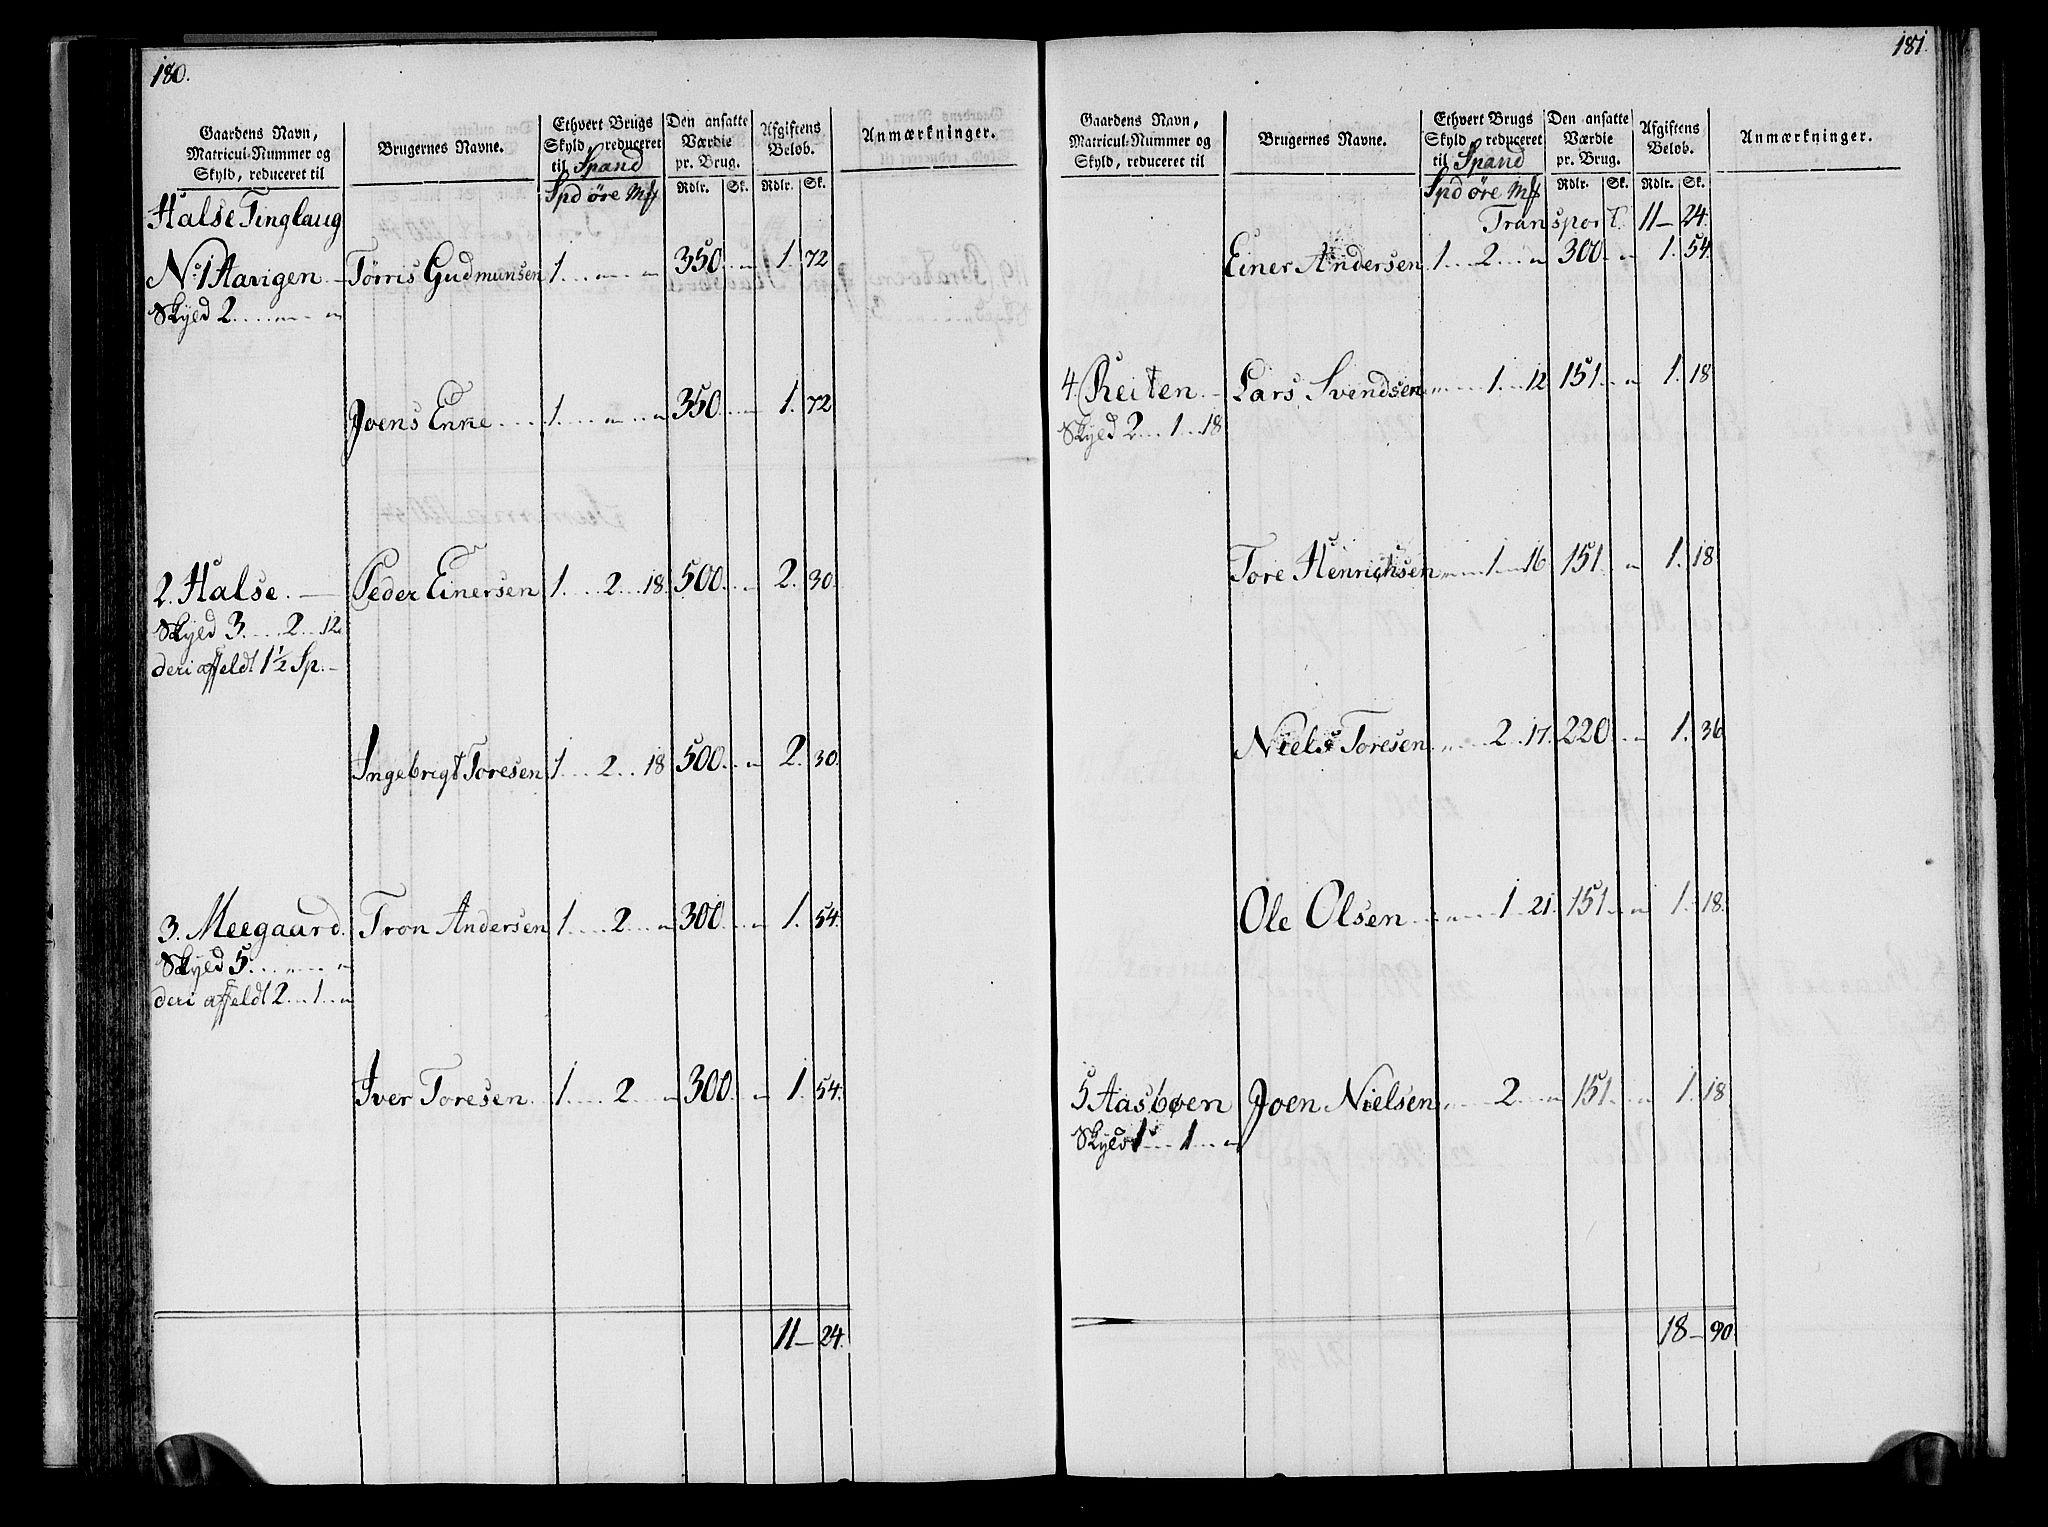 180.
Gaardens Navn, Matricul-Nummer og Skyld, reduceret til
Brugernes Navne.
Ethvert Brugs Skyld, reduceret til Spand
Den ansatte Værdie pr. Brug.
Afgiftens Beløb.
Anmærkninger.
Spd öre mſ Rdlr. Sk. Rdlr. Sk.
Halse Tinglaug
No 1 Havigen Törris Gudmunsen 1 " " 350 " 1. 72
Skyld 2 " "
Joens Enke 1 " " 350 " 1. 72
2. Halse Peder Einersen 1 2 18 500 " 2. 30.
Skyld 3 2 12
deri affeldt 1½ Sp.
Ingebrigt Toresen 1 2 18 500 " 2. 30.
3. Meegaard Tron Andersen 1 2 " 300 " 1. 54.
Skyld 5 " "
deri affeldt 2 1 "
Iver Toresen 1 2 " 300 " 1. 54.
11 24.
181.
Gaardens Navn, Matricul-Nummer og Skyld, reduceret til
Brugernes Navne.
Ethvert Brugs Skyld, reduceret til Spand
Den ansatte Værdie pr. Brug.
Afgiftens Beløb.
Anmærkninger.
Spd öre mſ Rdlr. Sk. Rdlr. Sk.
Transport 11 24.
Einer Andersen 1 2 " 300 " 1. 54.
4. Reiten Lars Svendsen " 1 12 151 " 1. 18
Skyld 2 1 18
Tore Henrichsen " 1 16 151 " 1. 18
Niels Toresen " 2 17. 220 " 1. 36
Ole Olsen " 1 21. 151 " 1. 18.
5 Aasbøen Joen Nielsen " 2 " 151 " 1. 18
Skyld 1 1 "
18 90.